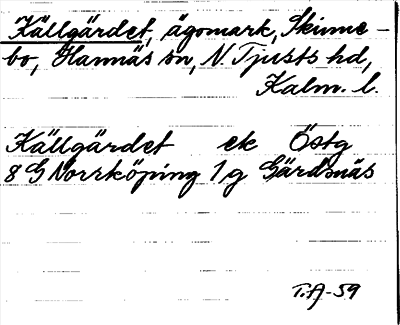 Källgärdet, ägomark, Skinne-
bo, Hannäs sn, N. Tjusts hd,
Kalm. l.
Källgärdet ek Östg
8 G Norrköping 1g Gärdsnäs
T.A-59